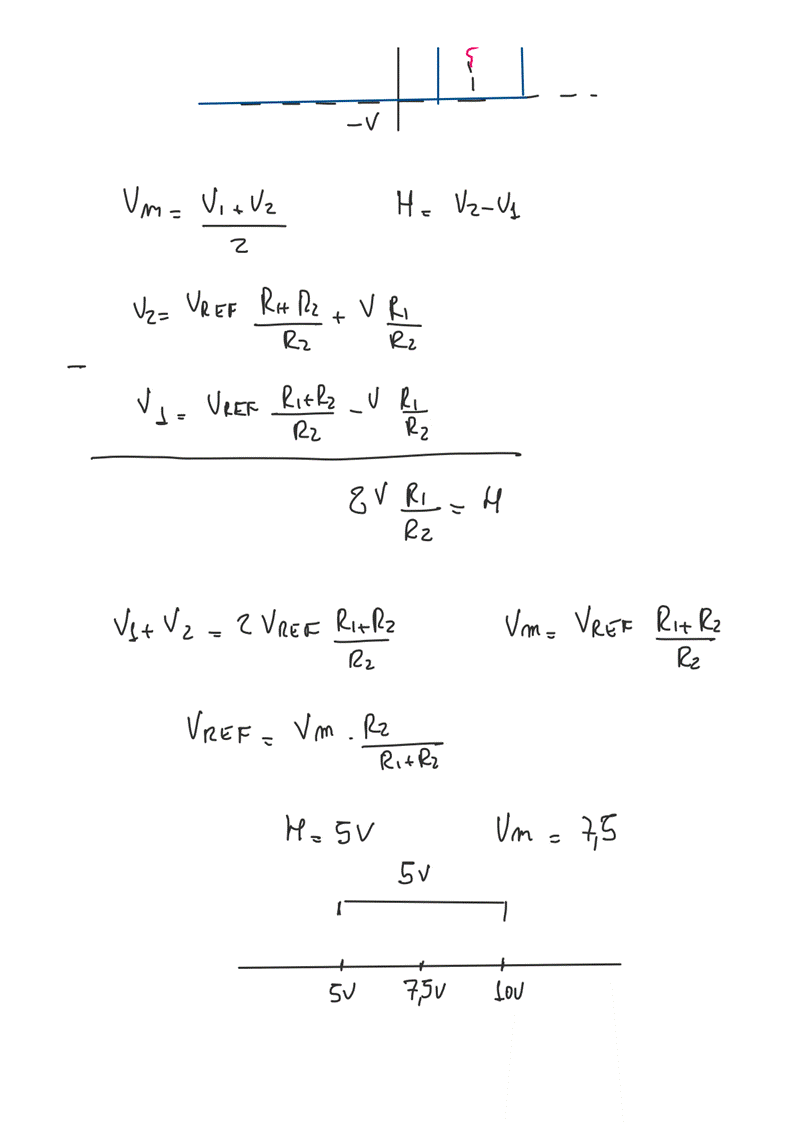 -V
Vm = (V1 + V2)/2 H = V2 - V1
V2 = VREF (R1+R2)/R2 + V R1/R2
-
V1 = VREF (R1+R2)/R2 - V R1/R2
2V R1/R2 = H
V1 + V2 = 2 VREF (R1+R2)/R2 Vm = VREF (R1+R2)/R2
VREF = Vm . R2/(R1+R2)
H = 5V Vm = 7,5
5V
5V 7,5V 10V